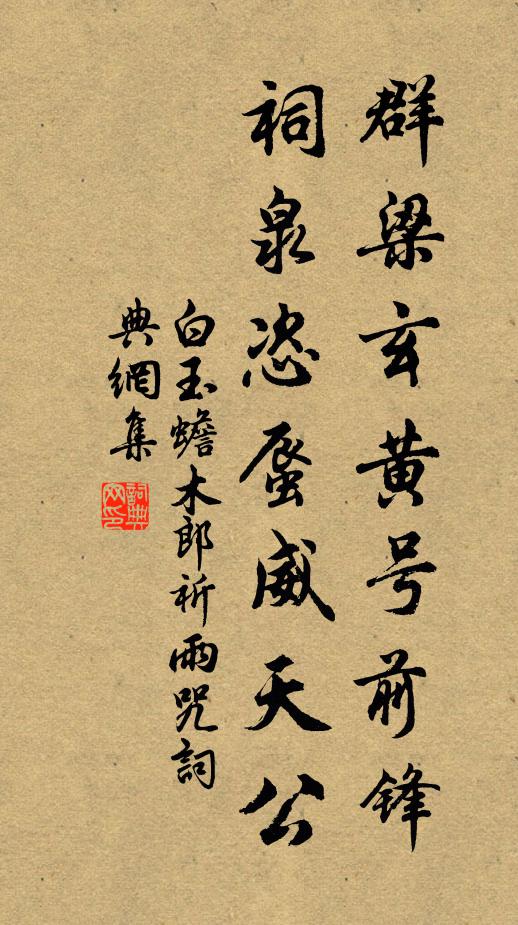 群梁玄黄号前锋
祠泉恣蜃威天公
白玉蟾木郎祈雨咒詞
典網集
詞典網印